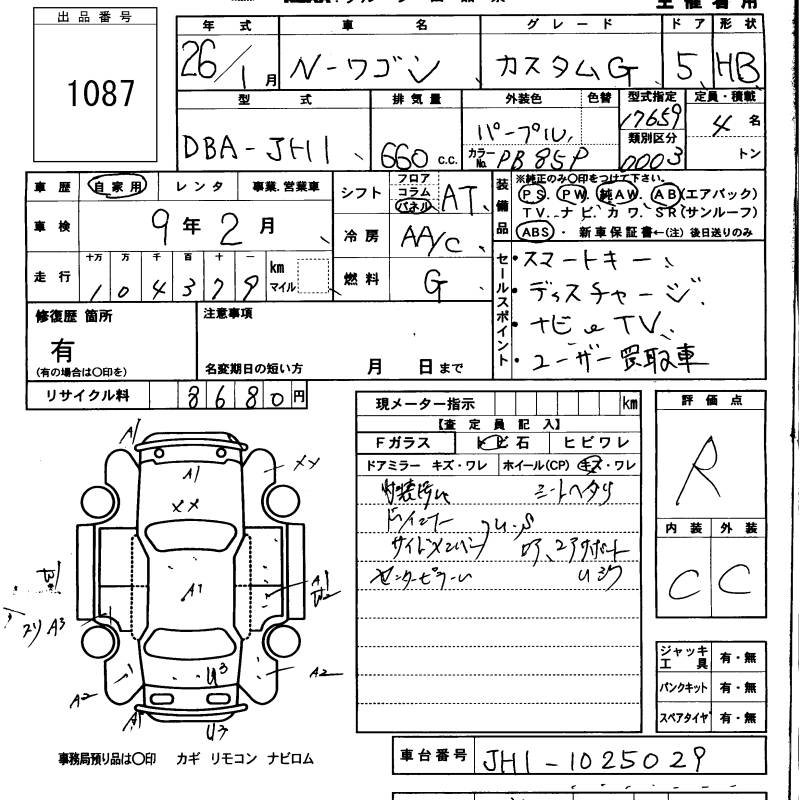 出品番号
1087
年式 車名 グレード ドア 形状
26/1月 N-ワゴン カスタムG 5 HB
型式 排気量 外装色 色替 型式指定 定員・積載
DBA-JH1 660 c.c. パープル 17659 4名
類別区分
カラーNo. PB85P 0003 トン
車歴 自家用 レンタ 事業.営業車
シフト フロア コラム パネル AT
装備品 ※純正のみ〇印をつけて下さい。
PS. PW. 純AW. AB(エアバック)
TV. ナビ. カワ. SR(サンルーフ)
ABS・ 新車保証書←(注)後日送りのみ
車検 9年2月
冷房 AA/C
走行 十万 万 千 百 十 一
104379 km マイル
燃料 G
セールスポイント
・スマートキー
・ディスチャージ
・ナビ e TV
・ユーザー買取車
修復歴 箇所
有
(有の場合は〇印を)
注意事項
名変期日の短い方 月 日まで
リサイクル料 8680円
現メーター指示 km
【査定員記入】
Fガラス トビ石 ヒビワレ
ドアミラー キズ・ワレ ホイール(CP) キズ・ワレ
シートヘタリ
センターピラー
評価点
R
内装 外装
C C
A1
A1
メメ
メメ
A1
A1
W2
W1
スリA3
A2
A2
U3
A1
U3
ジャッキ工具 有・無
パンクキット 有・無
スペアタイヤ 有・無
事務局預り品は〇印 カギ リモコン ナビロム
車台番号 JH1-1025029